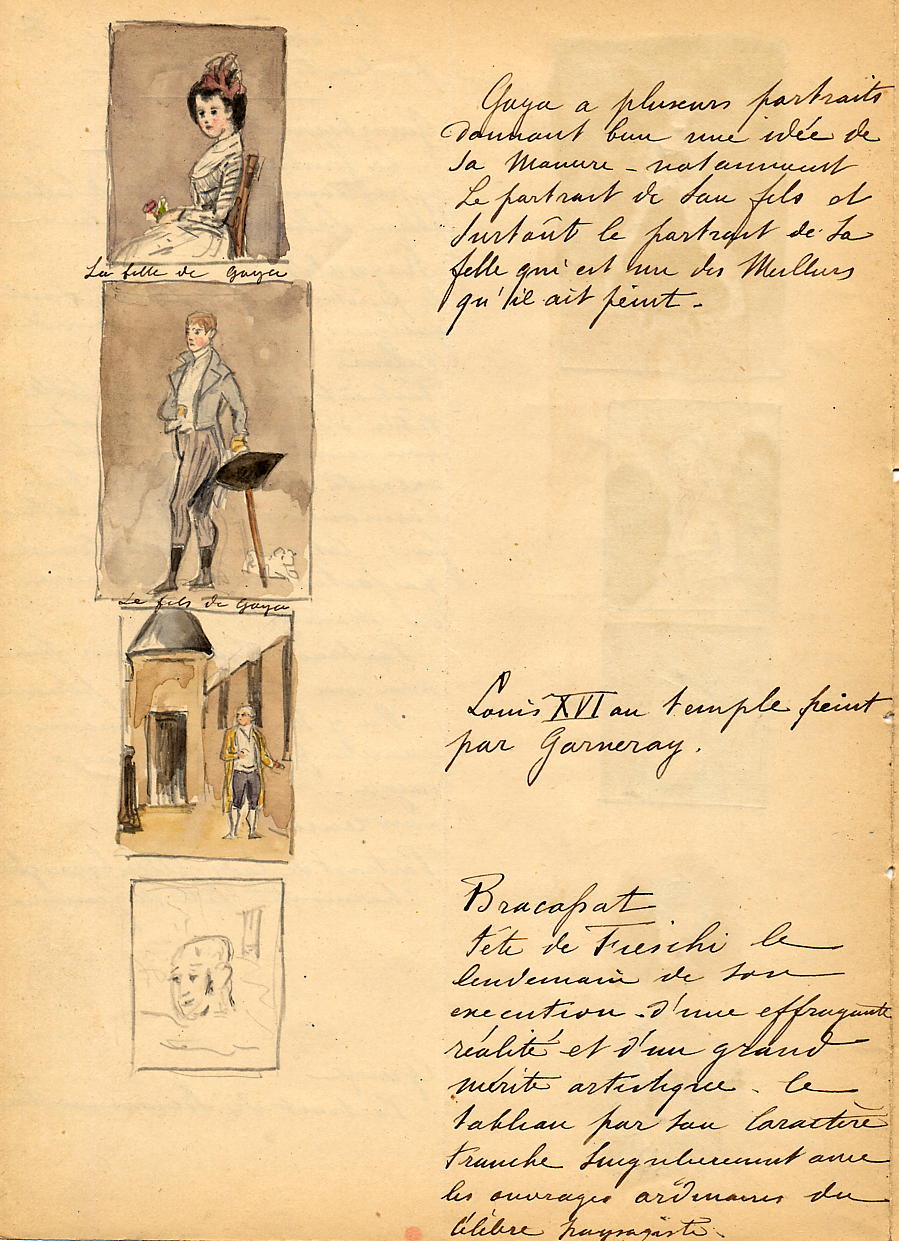 Goya a plusieurs portraits
donnant bien une idée de
sa manière - notamment
Le portrait de son fils et
surtoût le portrait de sa
fille qui est un des Meilleurs
qu'il ait peint -
La fille de Goya
Le fils de Goya
Louis XVI au temple peint
par Garneray.
Bracassat
tête de Fieschi le
lendemain de son
execution - d'une effrayante
réalité et d'un grand
mérite artistique - le
tableau par son Caractère
tranche singulierement avec
les ouvrages ordinaires du
célèbre paysagiste.